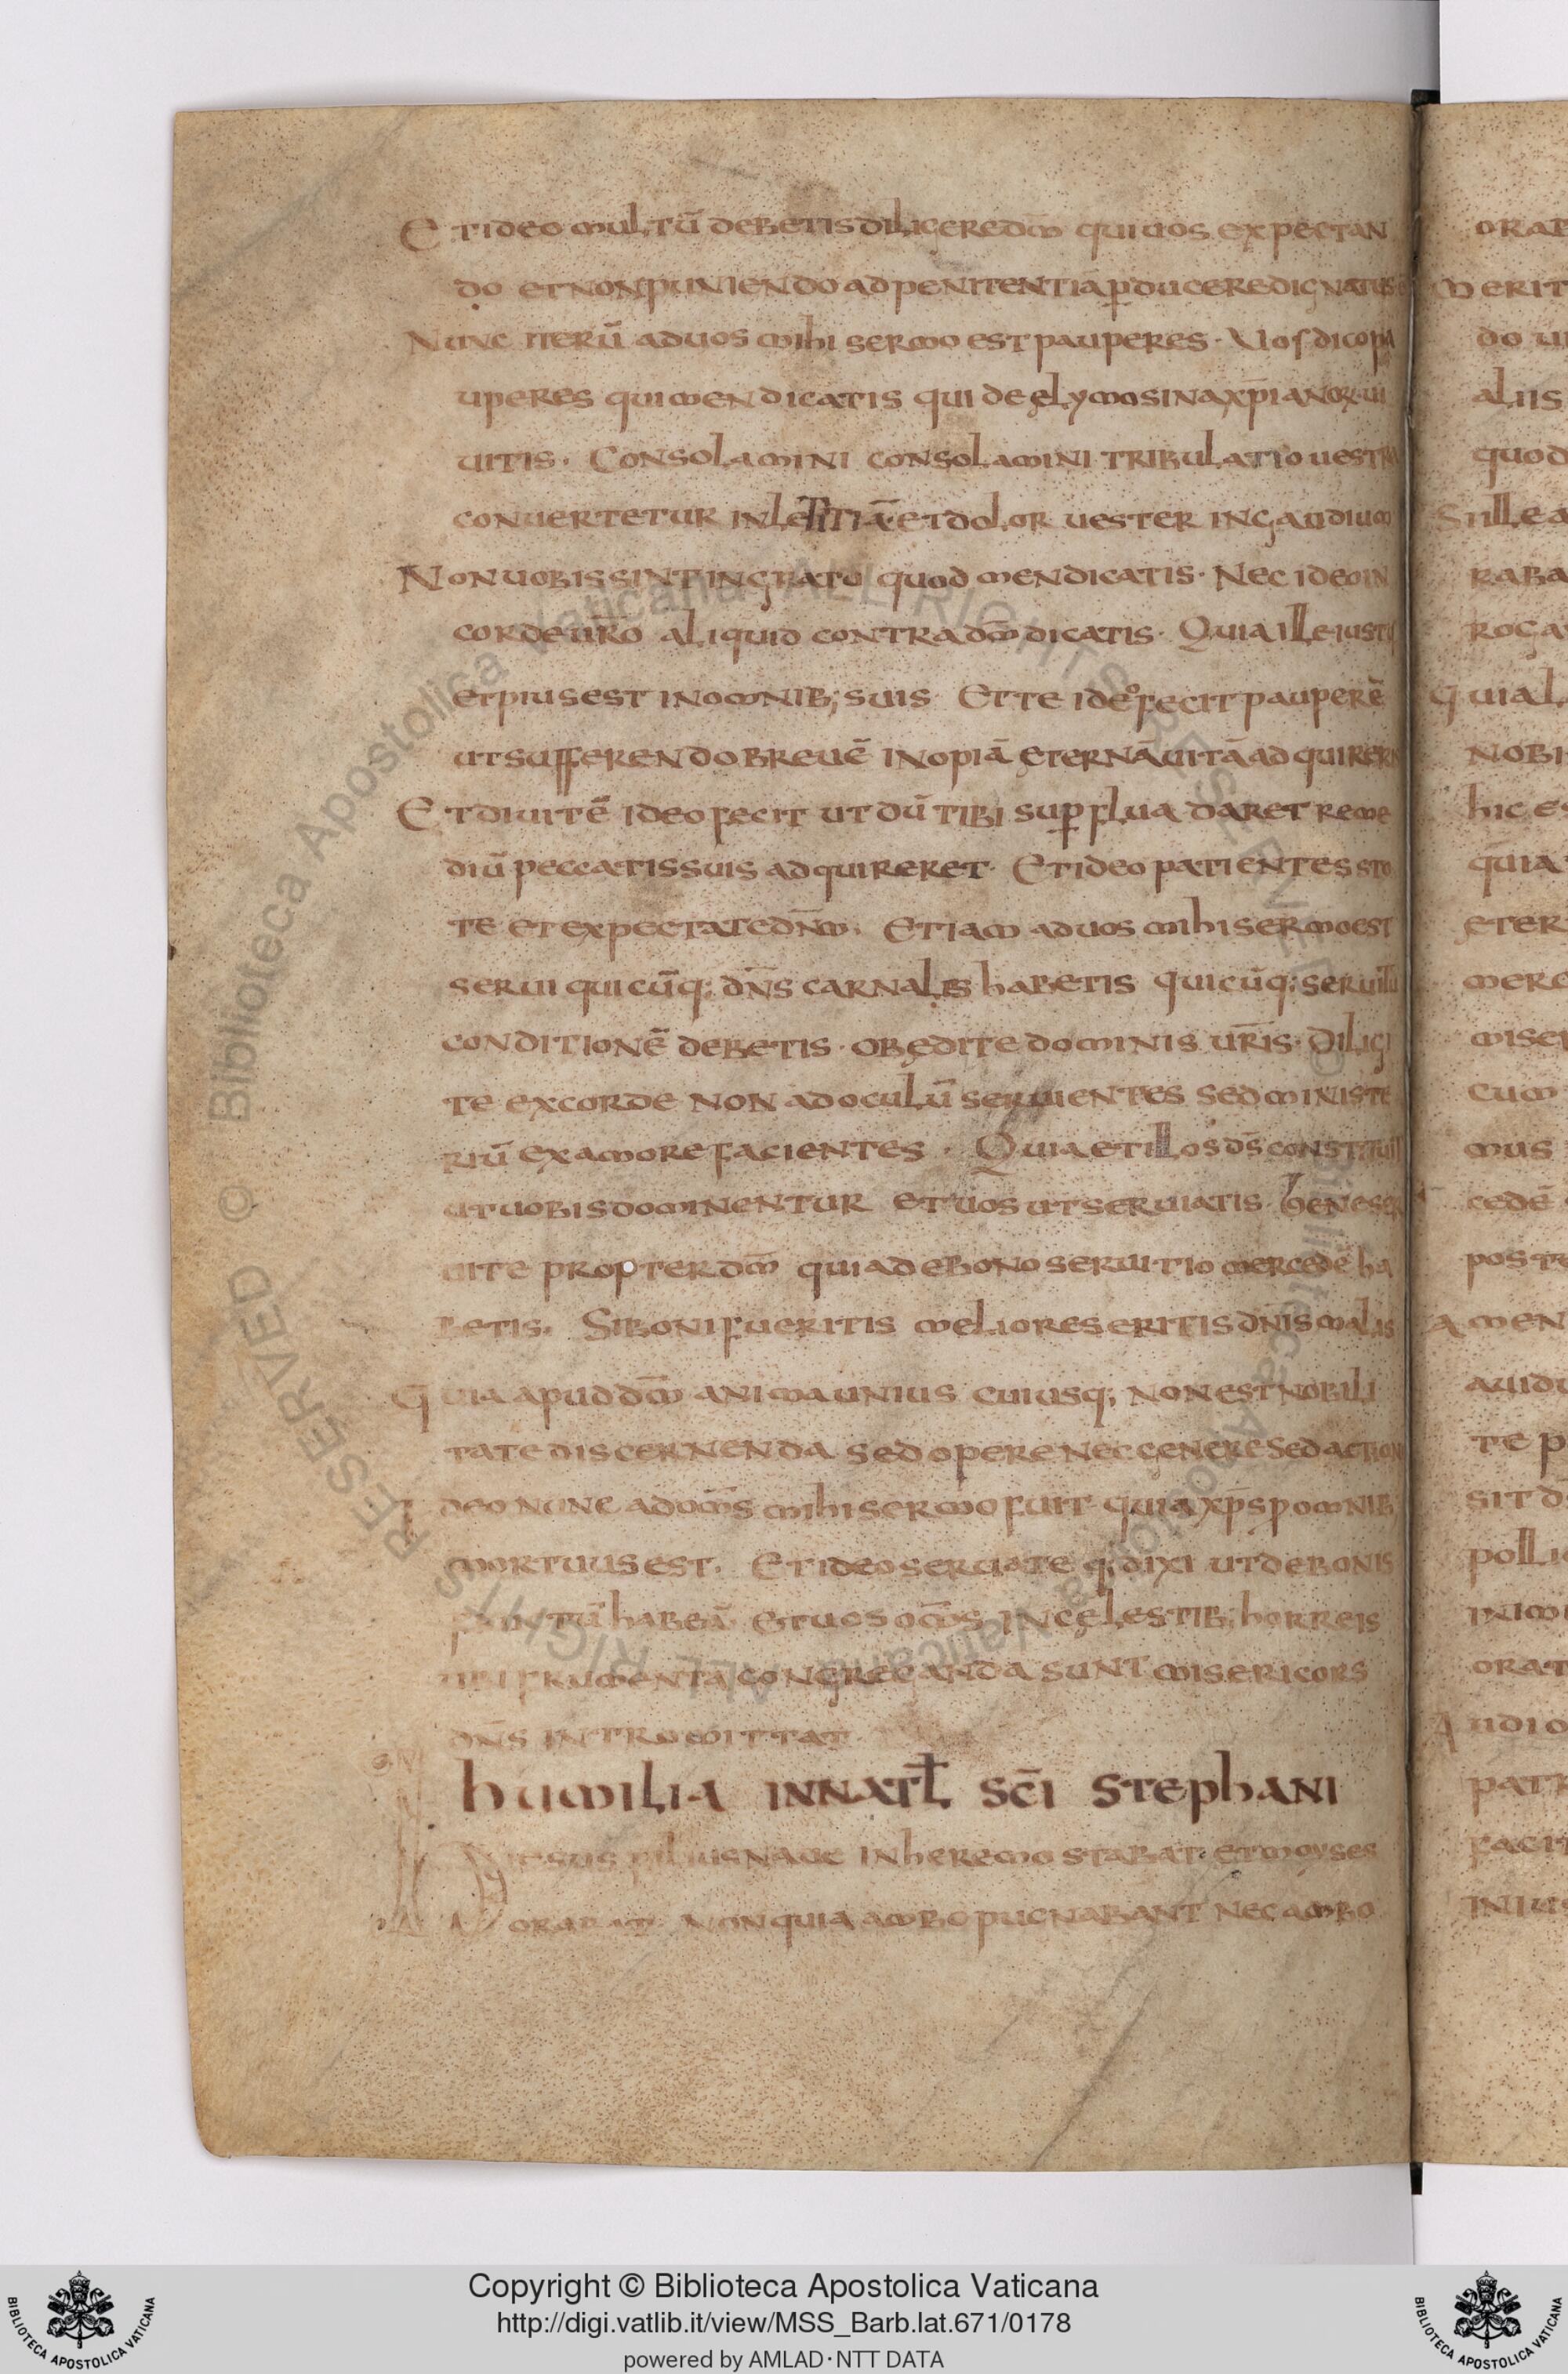 Et ideo multū debetis diligere dm̄ qui uos expectan
do et non puniendo ad penitentiā ꝑducere dignatus ē
Nunc iterū ad uos mihi sermo est pauperes · Vos dico pa
uperes qui mendicatis qui de elymosina xp̄ianoꝝ ui
uitis · Consolamini consolamini tribulatio uestra
conuertetur in letitiā · et dolor uester in gaudium
Non uobis sint ingrato quod mendicatis · Nec ideo in
corde ur̄o aliquid contra dm̄ dicatis · Quia ille iustus
et pius est in omnib; suis · Et te ideo fecit pauperē
ut sufferendo breuē inopiā ęterna uitā adquirere
Et diuitē ideo fecit ut dū tibi suꝑflua daret reme
diū peccatis suis adquireret · Et ideo patientes sto
te et expectate dn̄m · Etiam ad uos mihi sermo est
serui quicūq; dn̄s carnales habetis quicūq; seruitu
conditionē debetis · obędite dominis ur̄is · Diligi
te ex corde non ad oculū seruientes sed ministe
riū ex amore facientes · Quia et illos ds̄ constituit
ut uobis dominentur et uos ut seruiatis · bene ser
uite propter dm̄ quia de bono seruitio mercedē ha
betis · Si boni fueritis meliores eritis dn̄is malis
Quia apud dm̄ anima unius cuiusq; non est nobili
tate discernenda sed opere nec genere sed actione
Ideo nunc ad om̄s mihi sermo fuit quia xp̄s p omnib
mortuus est · Et ideo seruate q; dixi ut de bonis
habeā et uos om̄s in cęlestib; horreis
ubi frumenta congreganda sunt misericors
dn̄s intromittat
humilia in natł sc̄i stephani
filius naue in heremo stabat · et moyses
orabat · non quia ambo pugnabant nec ambo
Copyright © Biblioteca Apostolica Vaticana
http://digi.vatlib.it/view/MSS_Barb.lat.671/0178
powered by AMLAD·NTT DATA